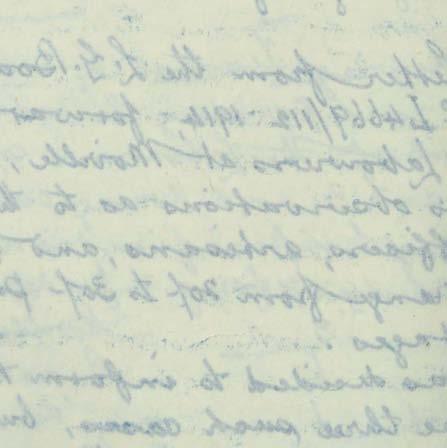 etter from the L.G. Boa
L4669/112 1914, forwar
Labourers at Moville,
s observations as to th
fficers, artisans, and
ange from 20/- to 30/- p
ages.
as decided to inform t
e three such cases, bu